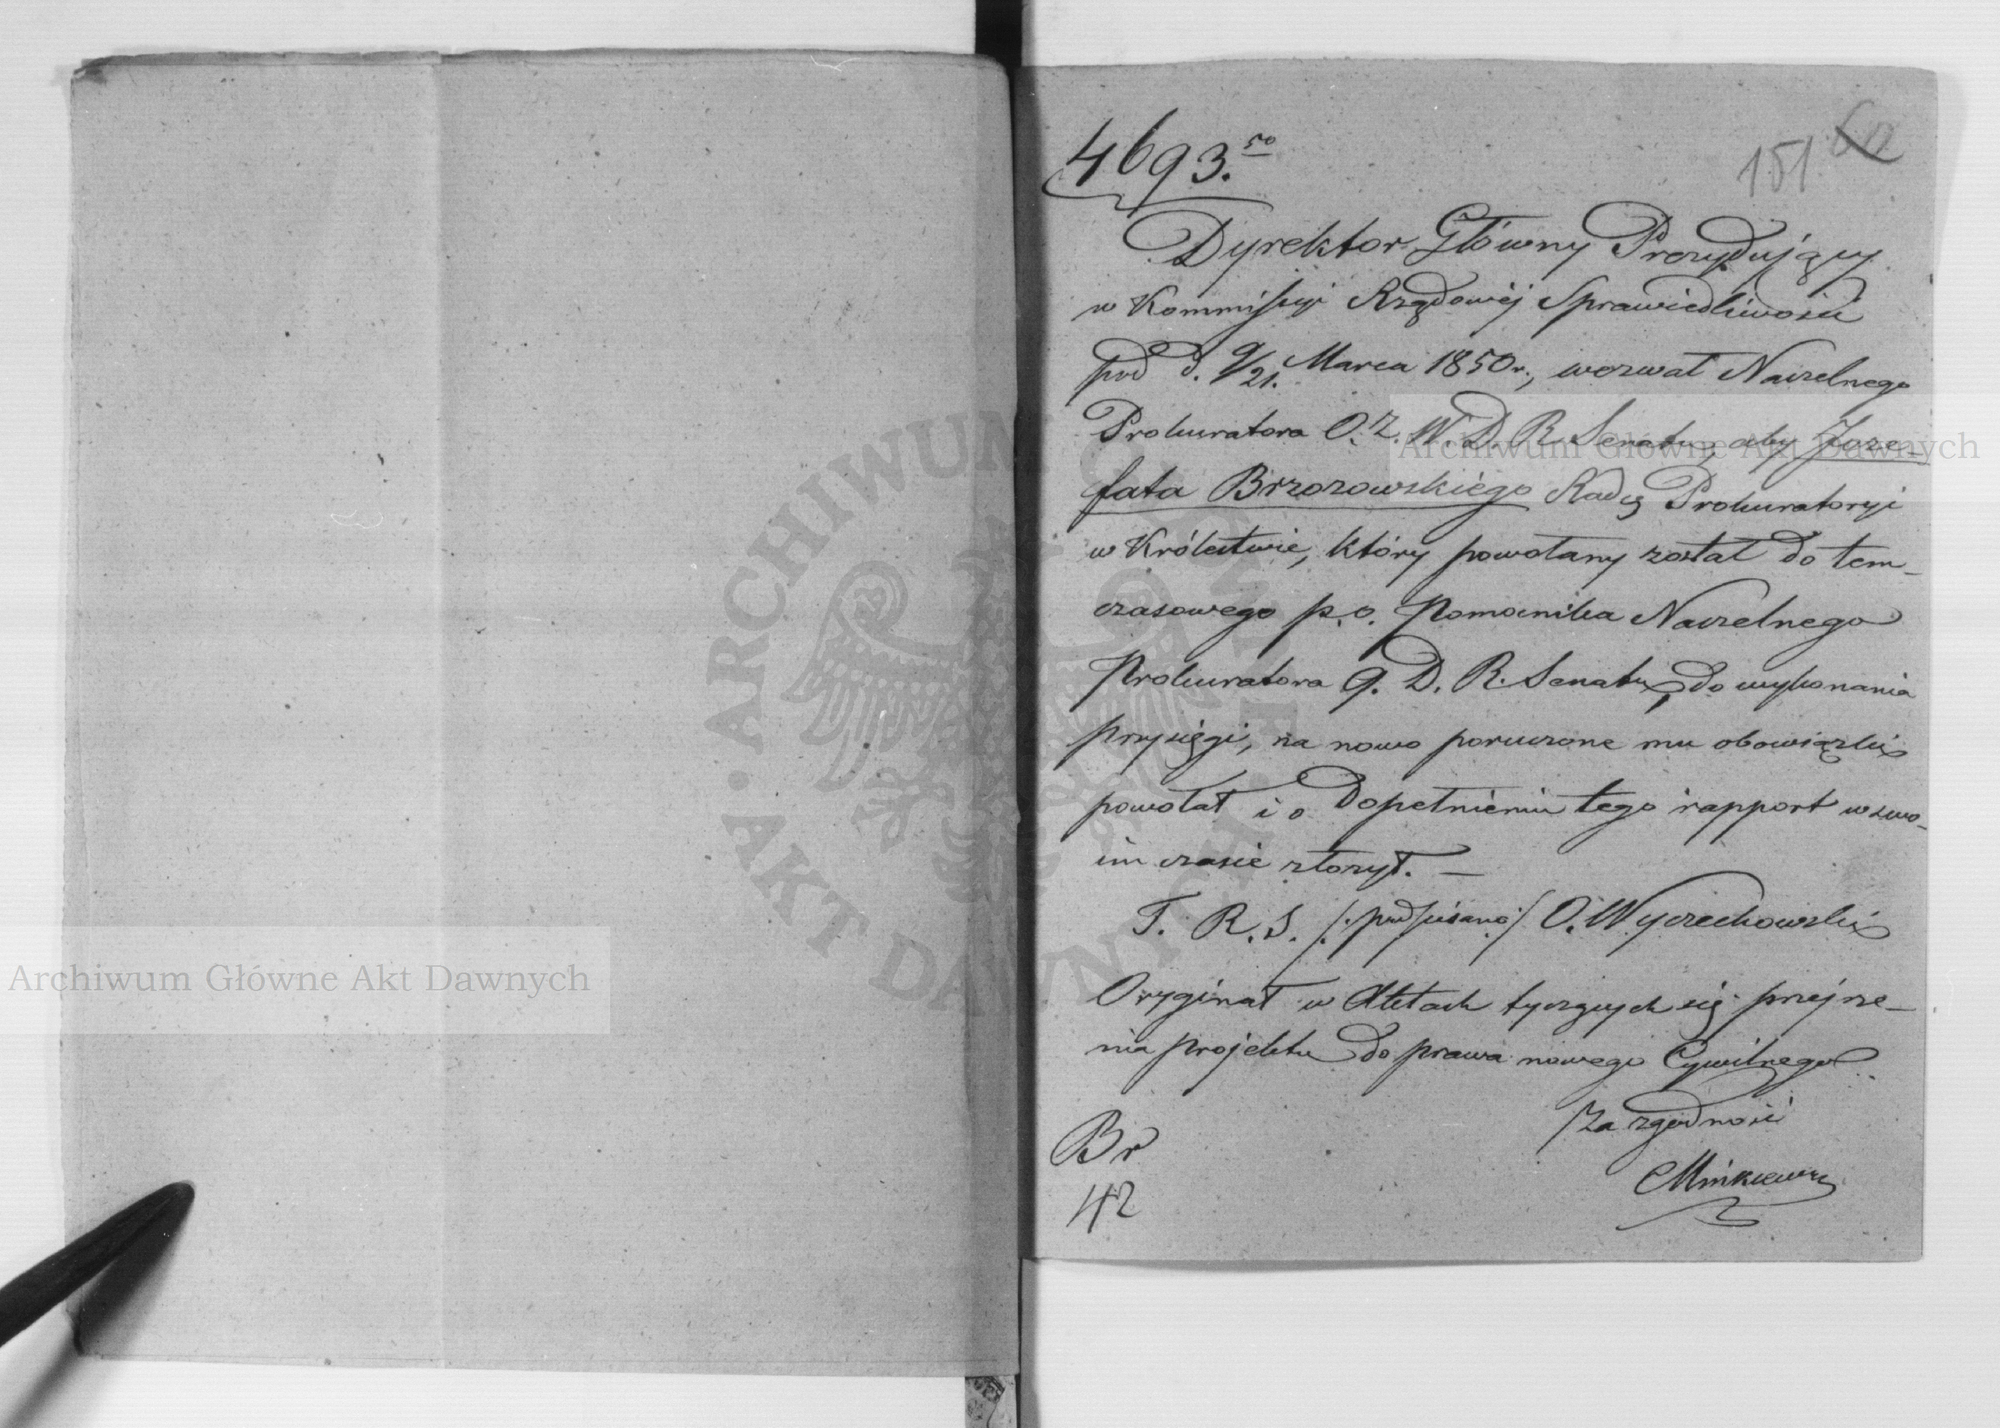 4693.50
151 60
Dyrektor Główny Prezydujący
w Kommissyi Rządowéj Sprawiedliwości
pod d. 9/21. Marca 1850 r., wezwał Naczelnego
Prokuratora O. Z. W. D. R. Senatu, aby Joze-
fata Brzozowskiego Radcę Prokuratoryi
w Królestwie, który powołany został do tem-
czasowego p. o. Pomocnika Naczelnego
Prokuratora 9. D. R. Senatu, do wykonania
przysięgi, na nowo poruczone mu obowiązki
powołał i o dopełnieniu tego rapport w swo-
im czasie złożył. —
T. R. S. /: podpisano :/ O. Wyczechowski
Oryginał w Aktach tyczących się przejrze-
nia projektu do prawa nowego Cywilnego
Za zgodność
Minkiewicz
Br
42
Archiwum Główne Akt Dawnych
Archiwum Główne Akt Dawnych
ARCHIWUM GŁÓWNE AKT DAWNYCH